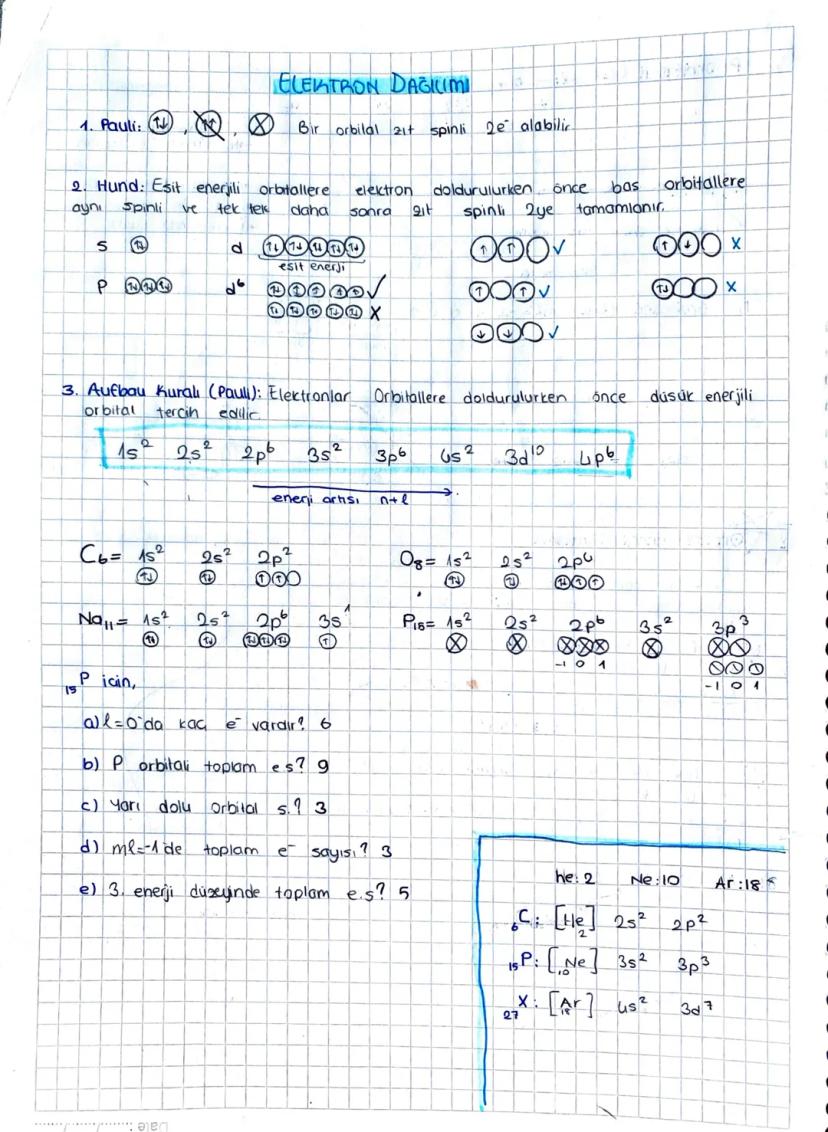 ELEKTRON DAĞILIMI
1. Pauli: ⥮, , ⊗ Bir orbital zıt spinli 2e⁻ alabilir
2. Hund: Eşit enerjili orbitallere elektron doldurulurken önce boş orbitallere
aynı spinli ve tek tek daha sonra zıt spinli 2ye tamamlanır.
s d ✓ x
eşit enerji
p d⁶ ✓ ✓ x
x ✓
3. Aufbau Kuralı (Pauli): Elektronlar Orbitallere doldurulurken önce düşük enerjili
orbital tercih edilir
1s² 2s² 2p⁶ 3s² 3p⁶ 4s² 3d¹⁰ 4p⁶
enerji artışı n+l
C₆= 1s² 2s² 2p² O₈= 1s² 2s² 2p⁴
Na₁₁= 1s² 2s² 2p⁶ 3s¹ P₁₅= 1s² 2s² 2p⁶ 3s² 3p³
-1 0 1
-1 0 1
₁₅P için,
a) l=0'da kaç e⁻ vardır? 6
b) P orbitali toplam e s? 9
c) Yarı dolu orbital s.? 3
d) ml=-1'de toplam e⁻ sayısı? 3
e) 3. enerji düzeyinde toplam e.s? 5
he: 2 Ne: 10 Ar: 18
₆C: [He] 2s² 2p²
2
₁₅P: [₁₀Ne] 3s² 3p³
₂₇X: [Ar] 4s² 3d⁷
18
Date :